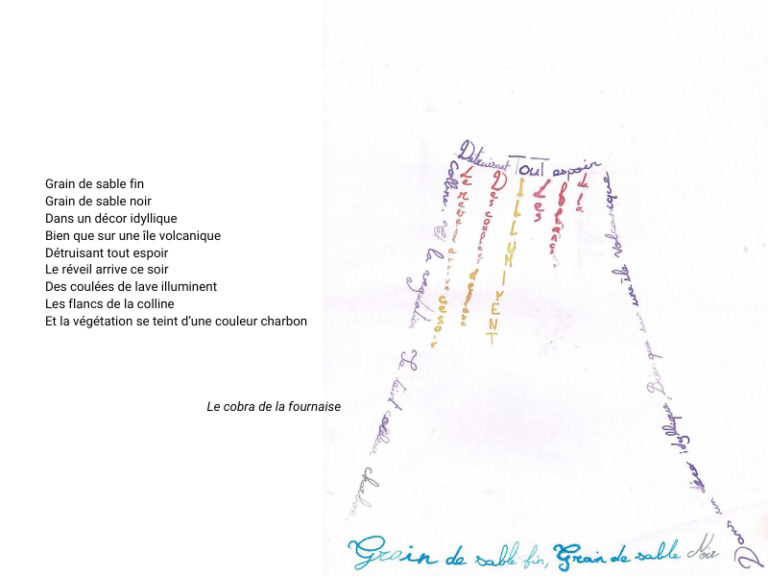 Grain de sable fin
Grain de sable noir
Dans un décor idyllique
Bien que sur une île volcanique
Détruisant tout espoir
Le réveil arrive ce soir
Des coulées de lave illuminent
Les flancs de la colline
Et la végétation se teint d’une couleur charbon
Le cobra de la fournaise
Grain de sable fin, Grain de sable Noir
Dans un décor idyllique, Bien que sur une île volcanique
Détruisant TOUT espoir
Le
ce soir
Des
ILLUMINENT
Les
de la
colline. Et la végétation Se teint couleur charbon